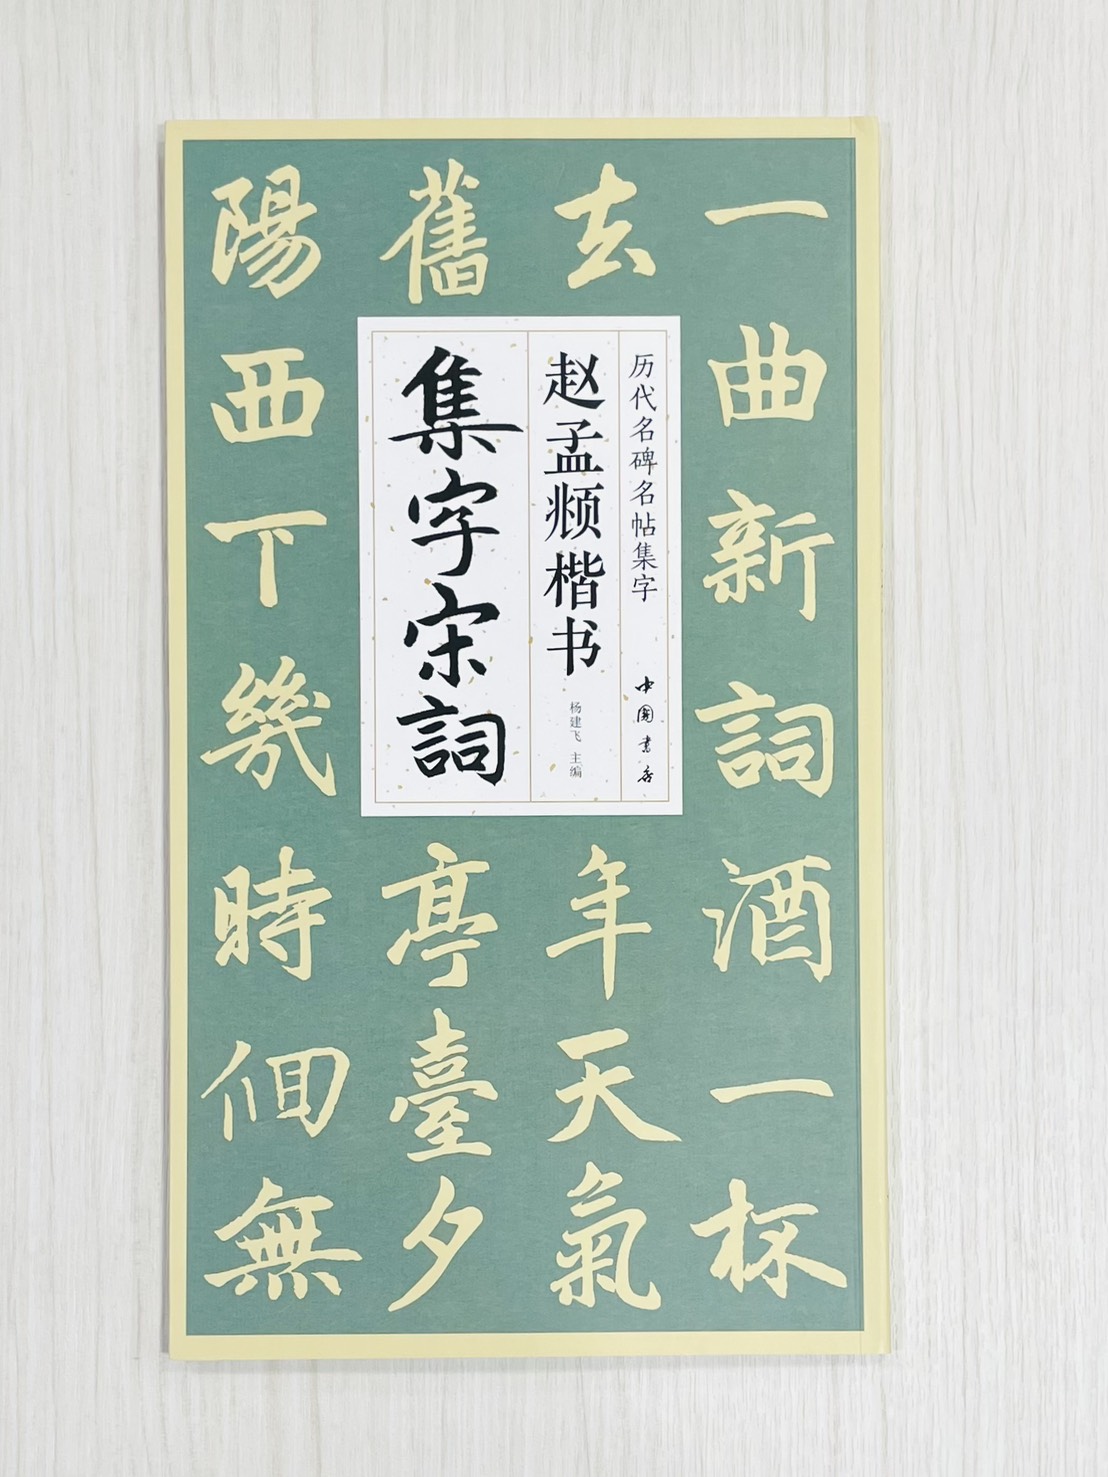 一曲新詞酒一杯
去年天氣
舊亭臺夕
陽西下幾時佪無
历代名碑名帖集字
中國書店
赵孟𫖯楷书
杨建飞 主编
集字宋詞